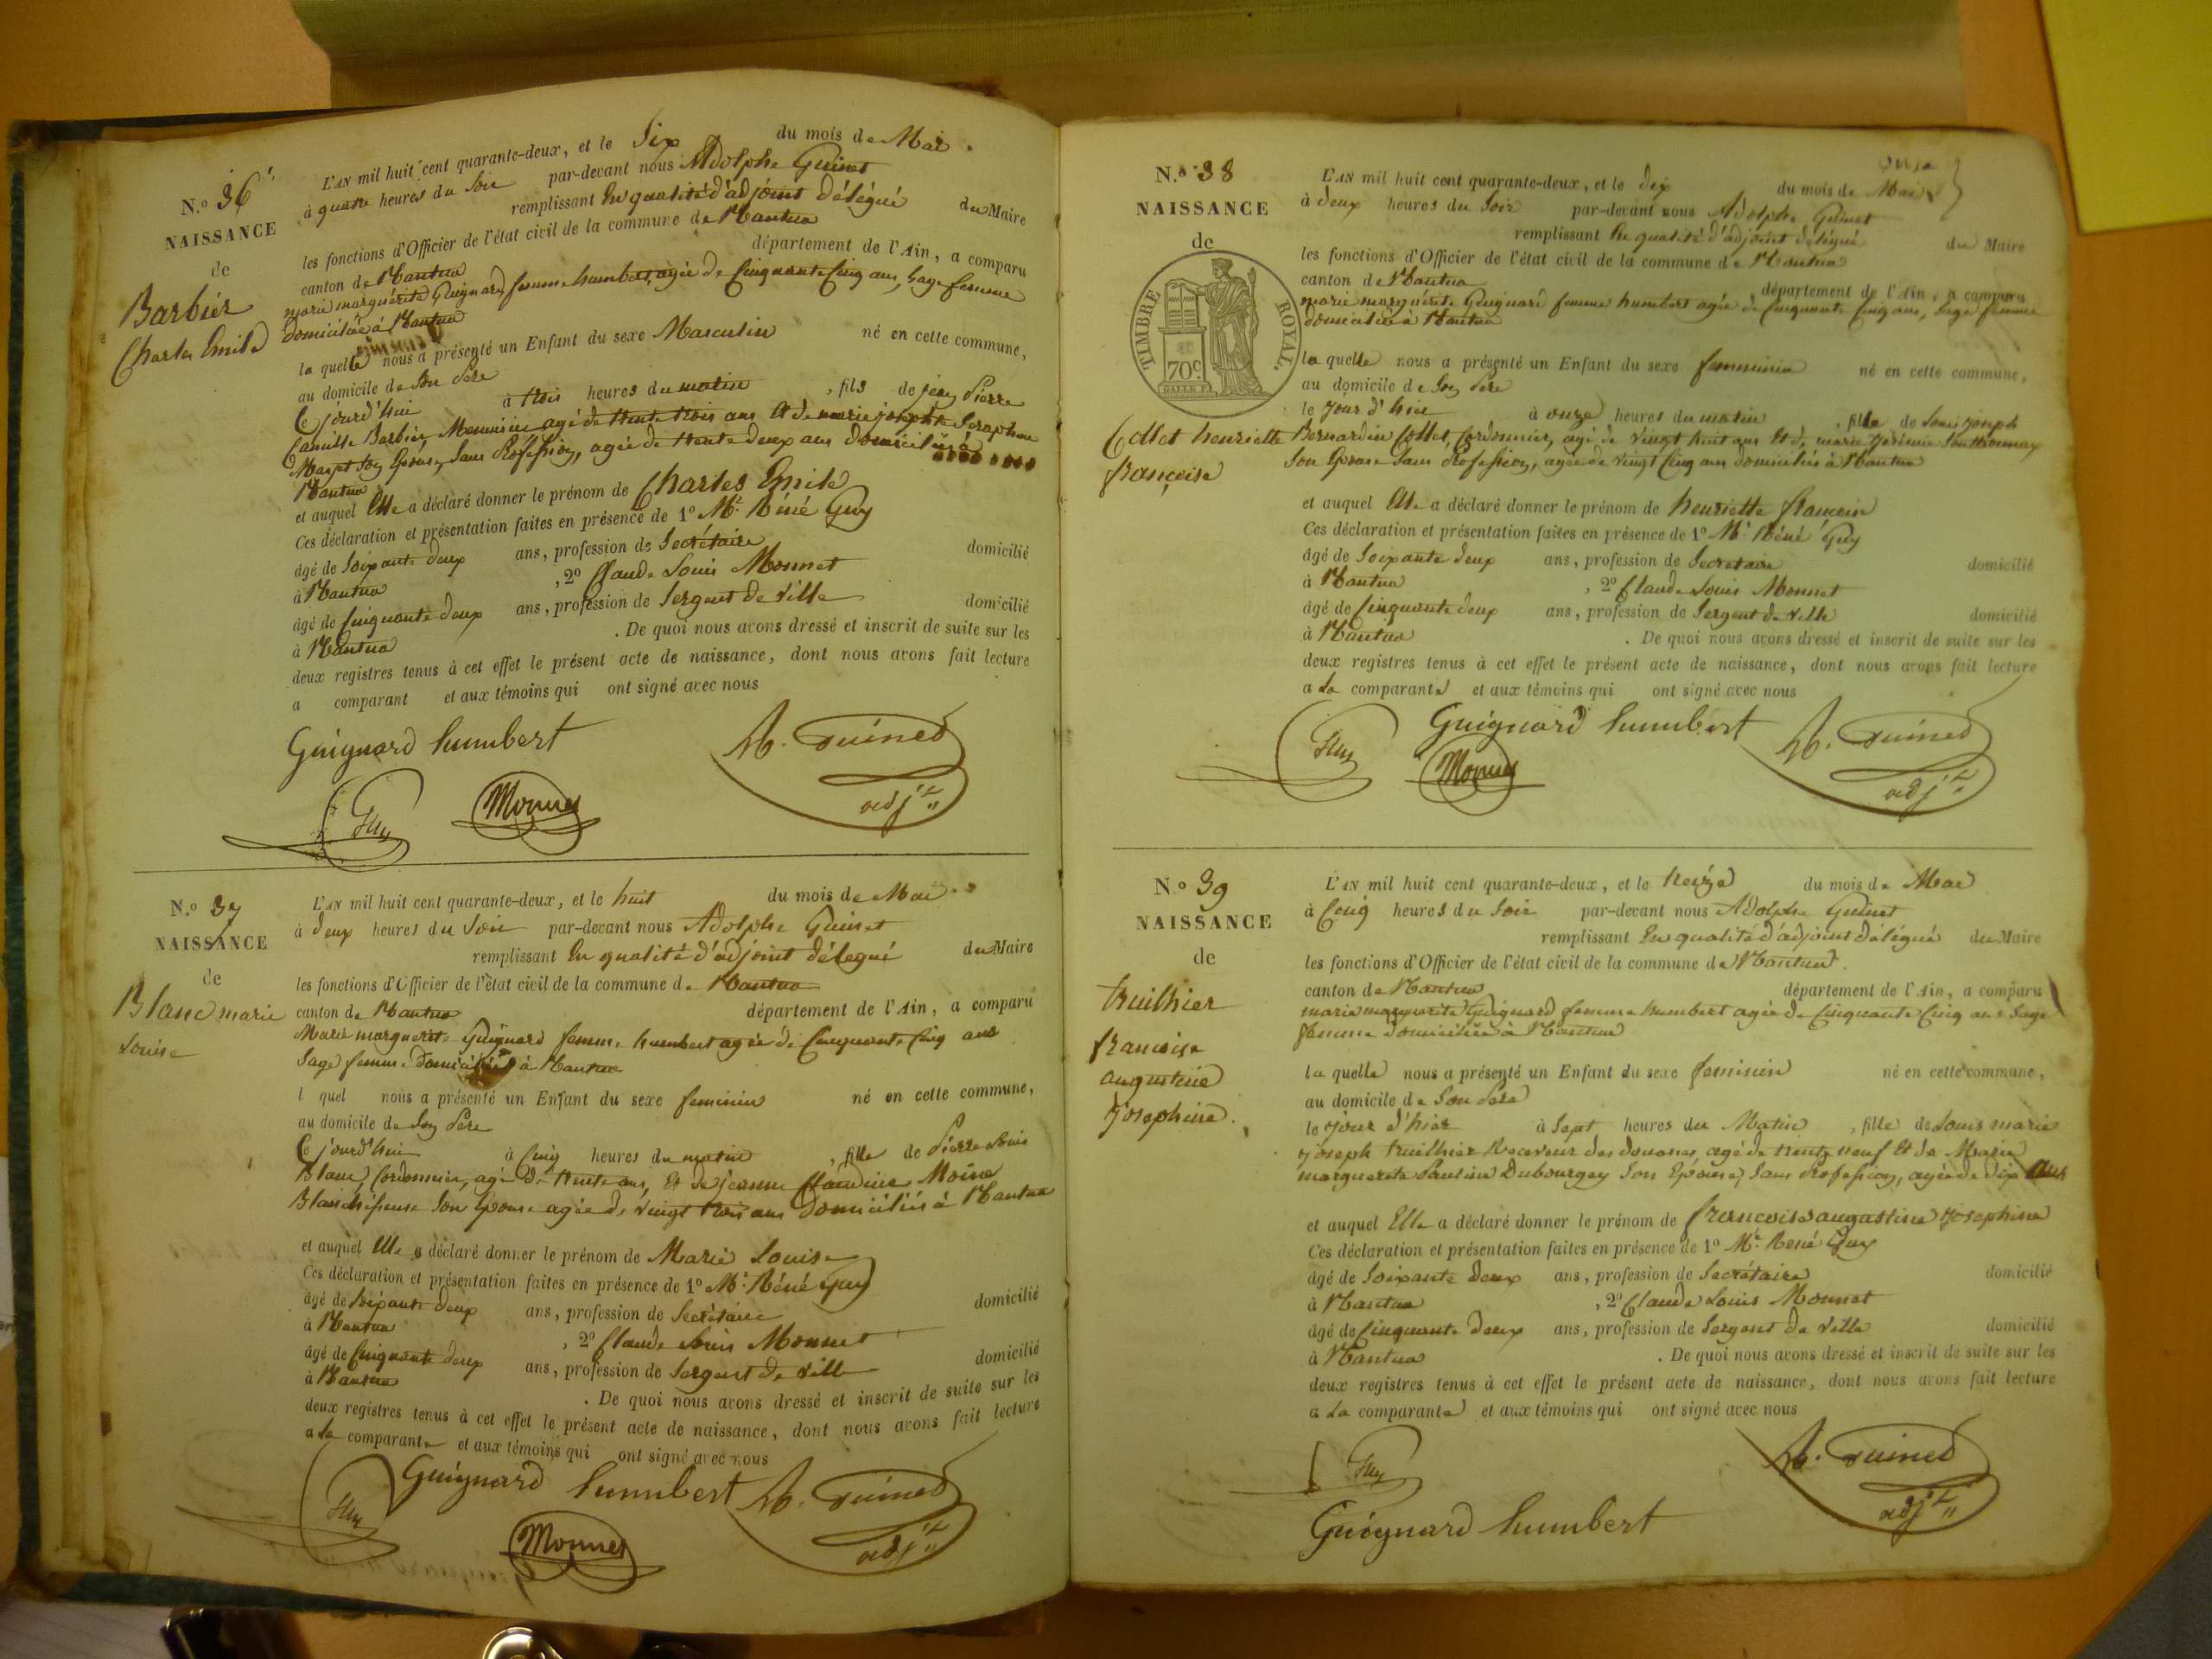 N.o 36
NAISSANCE
de
Barbier
Charles Emile
L'AN mil huit cent quarante-deux, et le Six du mois de Mai
à quatre heures du Soir par-devant nous Adolphe Guinet
remplissant En qualité d'adjoint délégué du Maire
les fonctions d'Officier de l'état civil de la commune de Nantua
canton de Nantua département de l'Ain, a comparu
marie marguérite Guignard femme humbert, agée de Cinquante Cinq ans, Sage femme
domiciliée à Nantua
la quelle nous a présenté un Enfant du sexe Masculin né en cette commune,
au domicile de Son Père
Ce jourd'hui à trois heures du matin, fils de jean Pierre
Camille Barbier, Menuisier agé de trente trois ans Et de marie josephte Seraphine
Son Epouse, Sans Profession, agée de trente deux ans domiciliés à
Nantua
et auquel Elle a déclaré donner le prénom de Charles Emile
Ces déclaration et présentation faites en présence de 1o Mr. Réné Guy
âgé de Soixante deux ans, profession de Secrétaire domicilié
à Nantua, 2o Claude Louis Monnet
âgé de Cinquante deux ans, profession de Sergent de Ville domicilié
à Nantua. De quoi nous avons dressé et inscrit de suite sur les
deux registres tenus à cet effet le présent acte de naissance, dont nous avons fait lecture
a comparant et aux témoins qui ont signé avec nous
Guignard humbert
A. Guinet
adjt
Guy
Monnet
N.o 37
NAISSANCE
de
Blanc marie
Louise
L'AN mil huit cent quarante-deux, et le huit du mois de Mai
à deux heures du Soir par-devant nous Adolphe Guinet
remplissant En qualité d'adjoint délégué du Maire
les fonctions d'Officier de l'état civil de la commune de Nantua
canton de Nantua département de l'Ain, a comparu
Marie marguerite Guignard femme humbert agée de Cinquante Cinq ans
Sage femme domiciliée à Nantua
l quel nous a présenté un Enfant du sexe feminin né en cette commune,
au domicile de Son Père
Ce jourd'hui à Cinq heures du matin, fille de Pierre Louis
Blanc, Cordonnier, agé de trente ans, Et de jeanne Claudine Moine
Blanchisseuse Son Epouse agée de vingt trois ans domiciliés à Nantua
et auquel Elle a déclaré donner le prénom de Marie Louise
Ces déclaration et présentation faites en présence de 1o Mr. Réné Guy
âgé de Soixante deux ans, profession de Secrétaire domicilié
à Nantua, 2o Claude Louis Monnet
âgé de Cinquante deux ans, profession de Sergent de Ville domicilié
à Nantua. De quoi nous avons dressé et inscrit de suite sur les
deux registres tenus à cet effet le présent acte de naissance, dont nous avons fait lecture
a La comparante et aux témoins qui ont signé avec nous
Guignard humbert
A. Guinet
adjt
Guy
Monnet
N.o 38
NAISSANCE
de
TIMBRE ROYAL.
70c.
Collet henriette
françoise
onze
L'AN mil huit cent quarante-deux, et le dix du mois de Mai
à deux heures du Soir par-devant nous Adolphe Guinet
remplissant En qualité d'adjoint délégué du Maire
les fonctions d'Officier de l'état civil de la commune de Nantua
canton de Nantua, département de l'Ain, a comparu
marie marguérite Guignard femme humbert agée de Cinquante Cinq ans, Sage femme
domiciliée à Nantua
la quelle nous a présenté un Enfant du sexe femminin né en cette commune,
au domicile de Son Père
le jour d'hier à onze heures du matin, fille de Louis joseph
Bernardin Collet, Cordonnier, agé de vingt huit ans Et de marie
Son Epouse Sans Profession, agée de vingt Cinq ans domiciliés à Nantua
et auquel Elle a déclaré donner le prénom de henriette
Ces déclaration et présentation faites en présence de 1o Mr. Réné Guy
âgé de Soixante deux ans, profession de Secretaire domicilié
à Nantua, 2o Claude Louis Monnet
âgé de Cinquante deux ans, profession de Sergent de Ville domicilié
à Nantua. De quoi nous avons dressé et inscrit de suite sur les
deux registres tenus à cet effet le présent acte de naissance, dont nous avons fait lecture
a La comparante et aux témoins qui ont signé avec nous
Guignard humbert
A. Guinet
adjt
Guy
Monnet
N.o 39
NAISSANCE
de
truilhier
francoise
augustine
josephine.
L'AN mil huit cent quarante-deux, et le treize du mois de Mai
à Cinq heures du Soir par-devant nous Adolphe Guinet
remplissant En qualité d'adjoint délégué du Maire
les fonctions d'Officier de l'état civil de la commune de Nantua.
canton de Nantua département de l'Ain, a comparu
marie marguerite Guignard femme humbert agée de Cinquante Cinq ans Sage
femme domiciliée à Nantua
la quelle nous a présenté un Enfant du sexe feminin né en cette commune,
au domicile de Son Père
le jour d'hier à Sept heures du Matin, fille de Louis marie
joseph truilhier Receveur des douanes, agé de trente neuf Et de Marie
marguerite Pauline Dubourgey Son Epouse, Sans Profession, agée de dix ans
et auquel Elle a déclaré donner le prénom de françoise augustine josephine
Ces déclaration et présentation faites en présence de 1o Mr. René Guy
âgé de Soixante deux ans, profession de Secrétaire domicilié
à Nantua, 2o Claude Louis Monnet
âgé de Cinquante deux ans, profession de Sergent de Ville domicilié
à Nantua. De quoi nous avons dressé et inscrit de suite sur les
deux registres tenus à cet effet le présent acte de naissance, dont nous avons fait lecture
a La comparante et aux témoins qui ont signé avec nous
Guy
A. Guinet
adjt
Guignard humbert